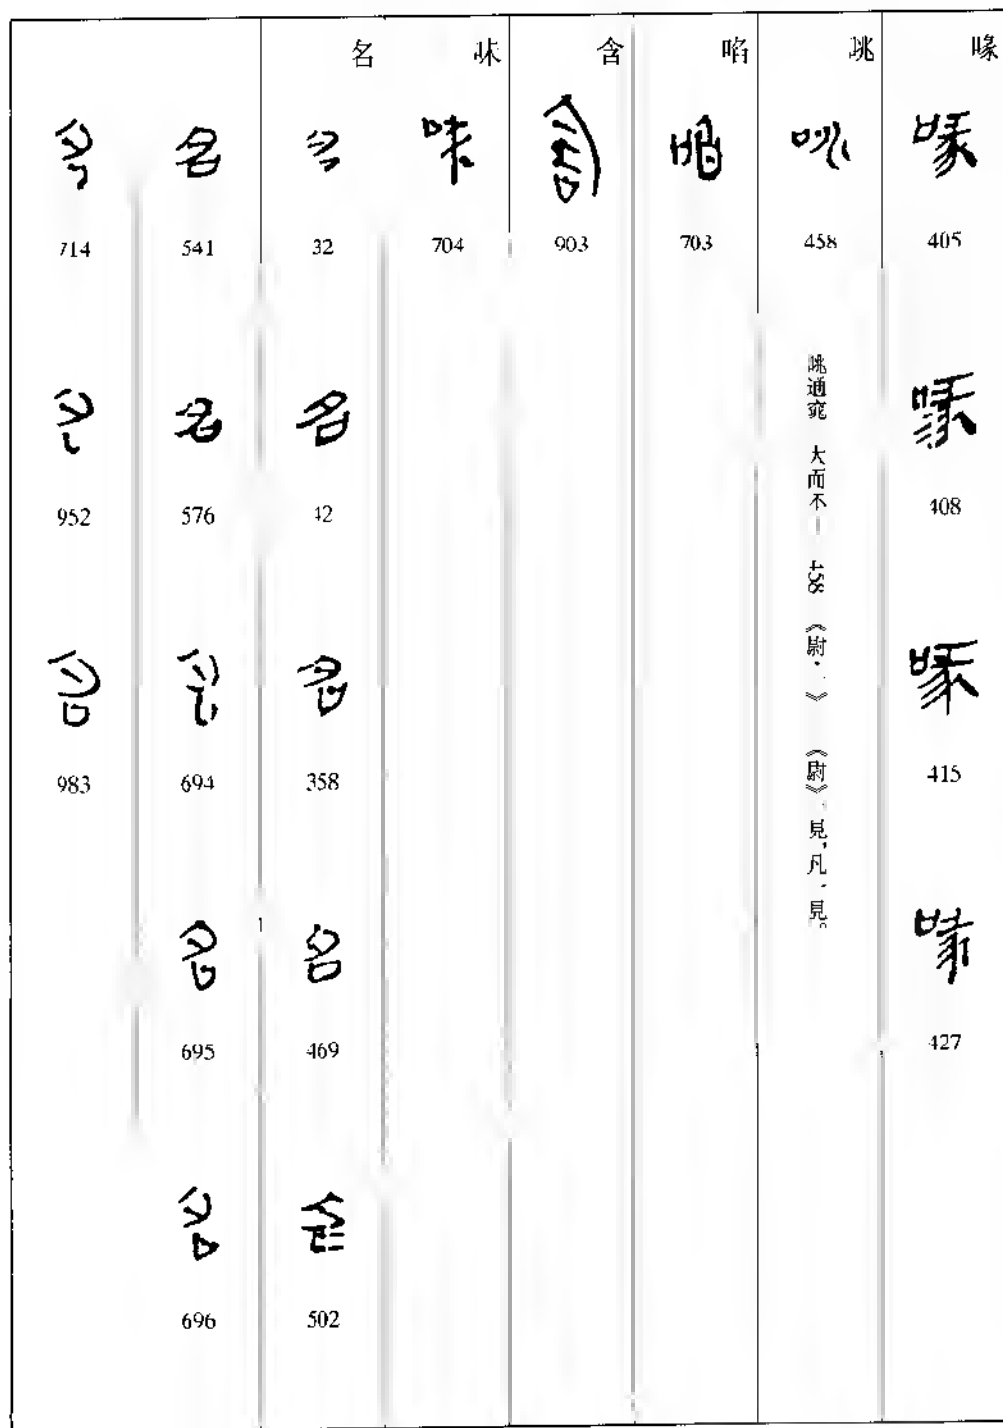 喙
405
408
415
427
咷
458
咷通窕 大而不｜ 458 《尉· 》 《尉》 見，凡 見。
啗
703
含
903
味
704
名
32
42
358
469
502
541
576
694
695
696
714
952
983